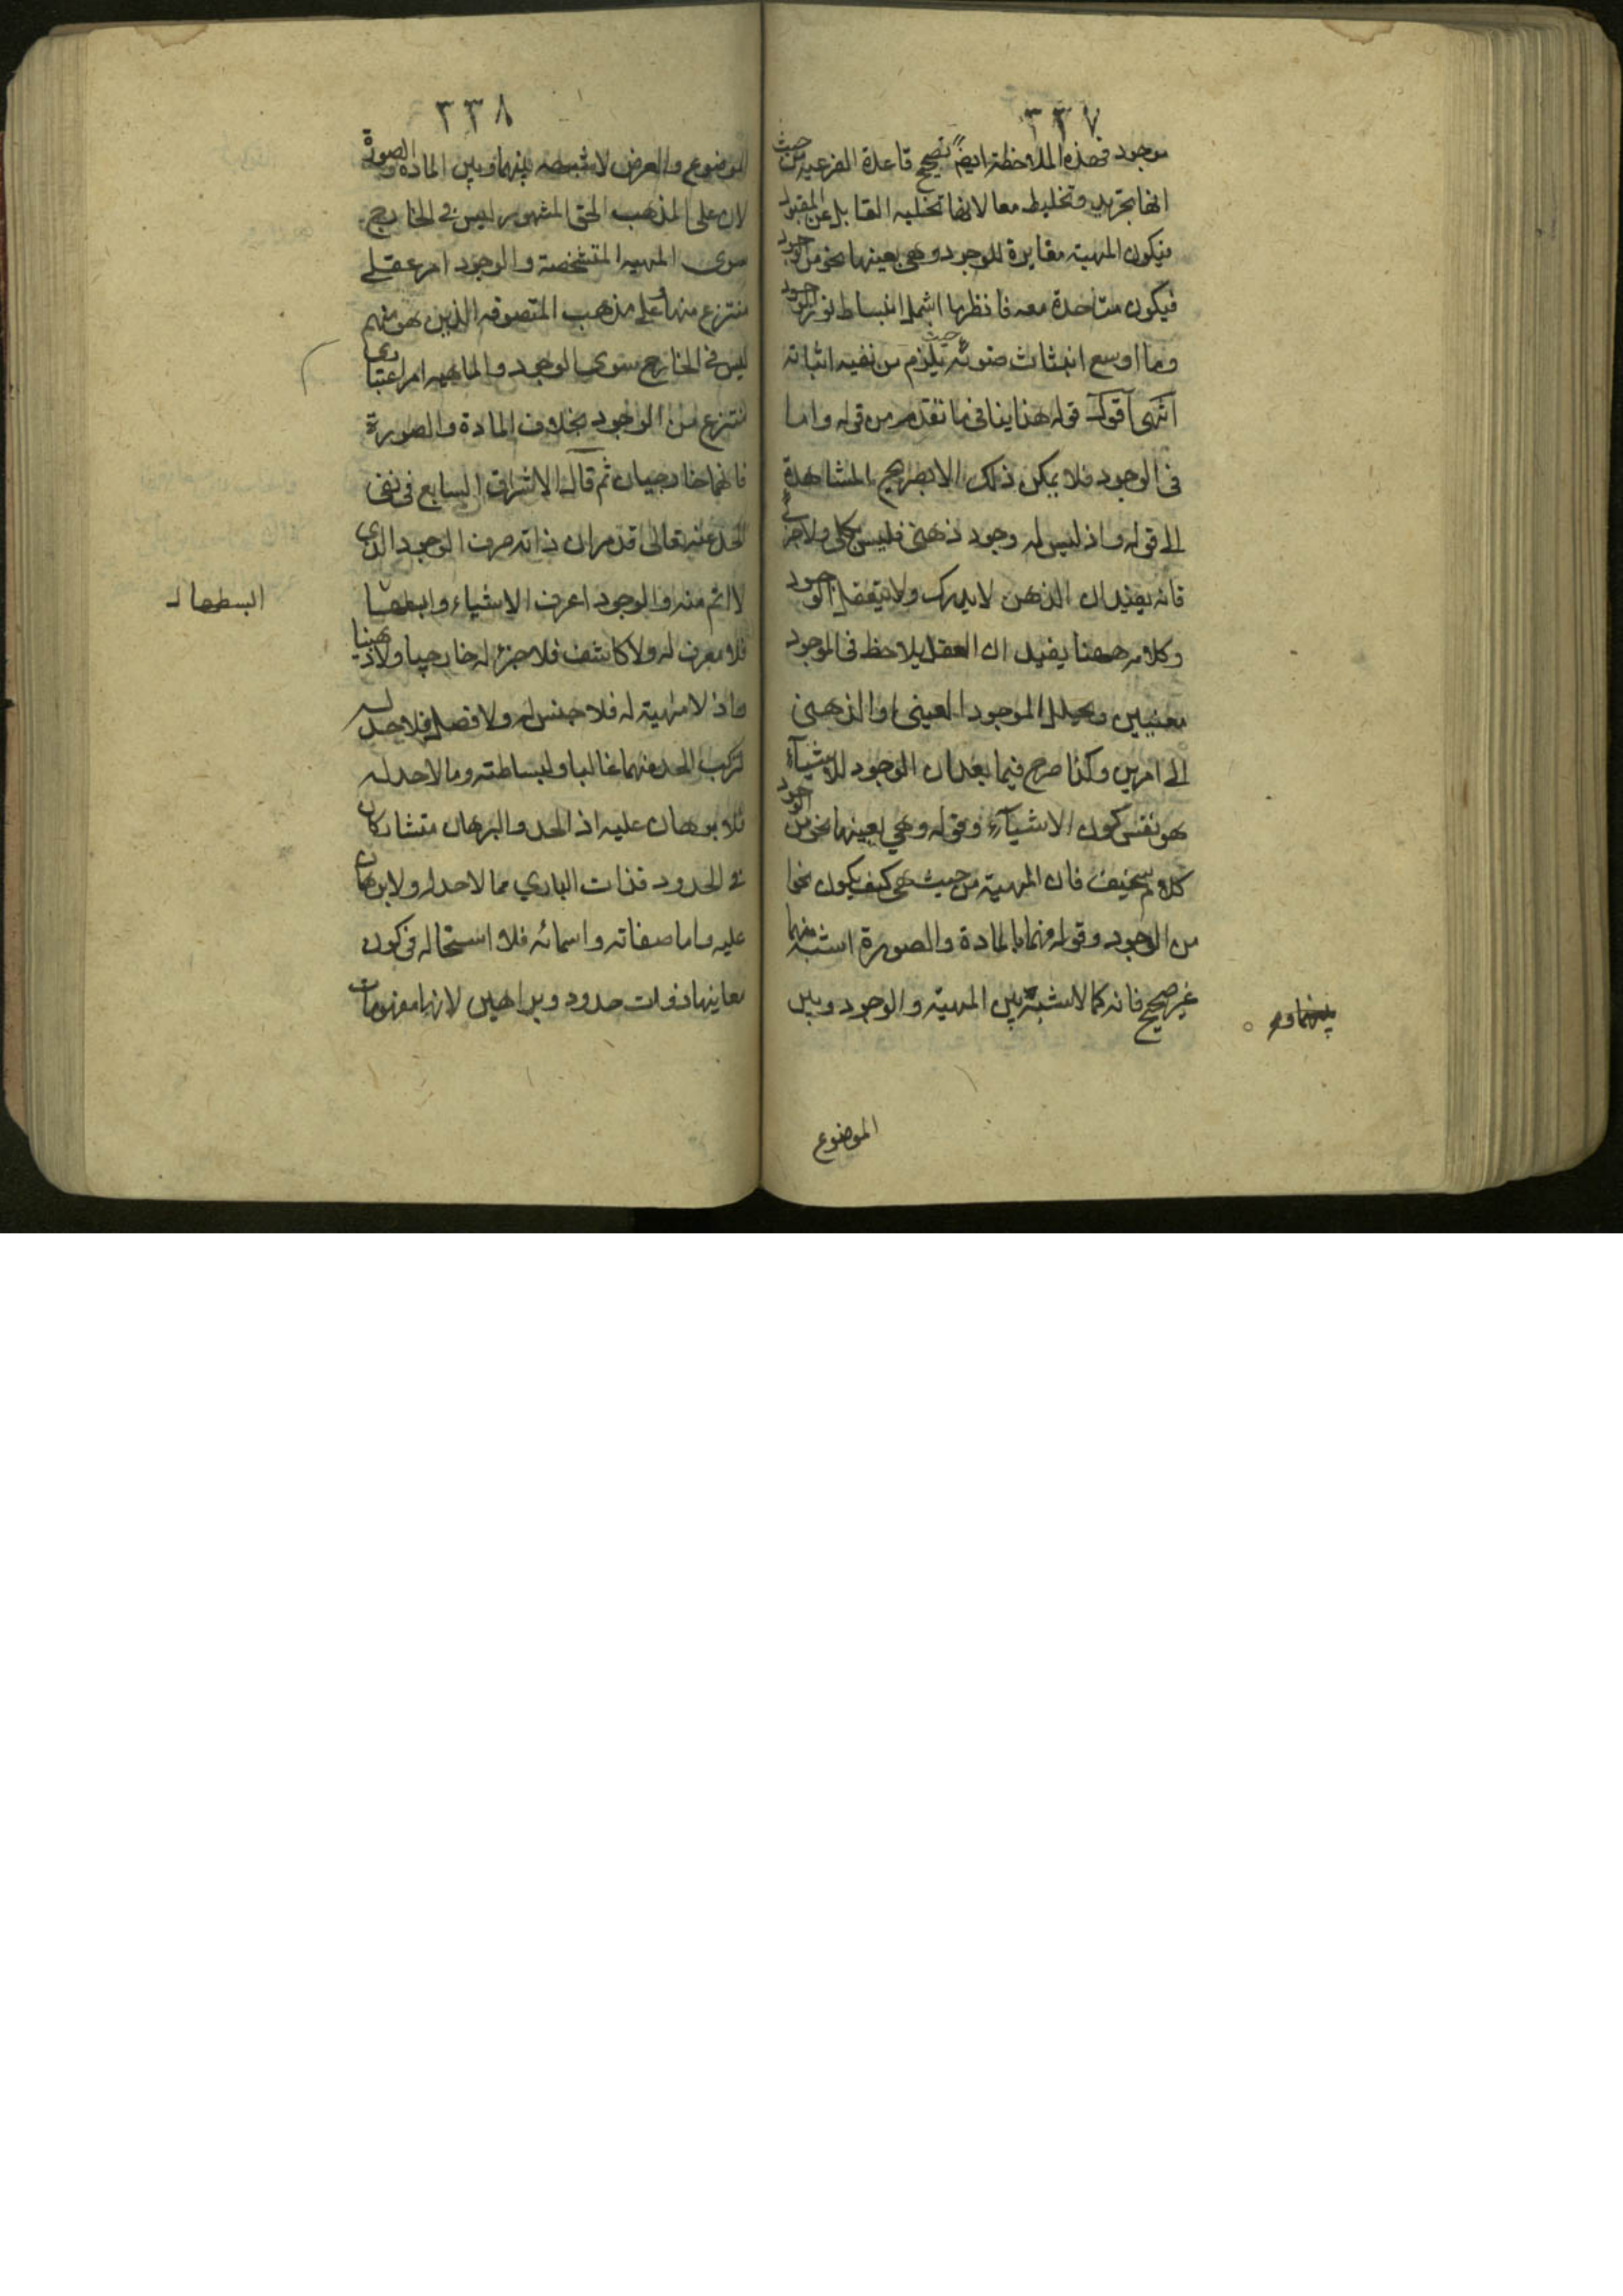 ٣٣٧
موجود فهذه الملاحظة ايضاً تصحح قاعدة الفرعية من حيث
انها تجريد وتخليط معا لانها تخلية القابل عن المقبول
فيكون المهية مغايرة للوجود وهى بعينها نحو من الوجود
فيكون متاحدة معه فانظر ما اشمل انبساط نور الوجود
وما اوسع انبثاث ضوئه حيث يلزم من نفيه اثباته
انتهى اقول قوله هذا ينافى ما تقدم من قوله واما
فى الوجود فلا يمكن ذلك الا بصريح المشاهدة
الى قوله واذ ليس له وجود ذهنى فليس بكلى ولا جزئى
فانه يفيد ان الذهن لا يدرك ولا يتعقل الوجود
وكلامه ههنا يفيد ان العقل يلاحظ فى الموجود
معنيين ويحلل الموجود العينى او الذهنى
الى امرين وكذا صرح فيما بعد ان الوجود للاشياء
هو نفس كون الاشياء وقوله وهي بعينها نحو من الوجود
كلام سخيف فان المهية من حيث هى كيف يكون نحوا
من الوجود وقوله فهما بالمادة والصورة اشبه منهما
غير صحيح فانه كما لا شبه بين المهية والوجود وبين
بينهما و
الموضوع
٣٣٨
الموضوع والعرض لا شبه بينهما وبين المادة والصورة
لان على المذهب الحق المشهور ليس فى الخارج
سوى المهية المتشخصة والوجود امر عقلى
منتزع منها وعلى مذهب المتصوفة الذين هو منهم
ليس فى الخارج سوى الوجود والماهية امر اعتبارى
منتزع من الوجود بخلاف المادة والصورة
فانهما خارجيان ثم قال الاشراق السابع فى نفى
الحد عنه تعالى قد مر ان ذاته صرف الوجود الذى
لا اتم منه والوجود اعرف الاشياء وابسطها
فلا معرف له ولا كاشف فلا جزء له خارجيا ولا ذهنيا
واذ لا مهية له فلا جنس له ولا فصل فلا حد له
لتركب الحد منهما غالبا ولبساطته وما لا حد له
فلا برهان عليه اذ الحد والبرهان متشاركان
فى الحدود فذات البارى مما لا حد له ولا برهان
عليه واما صفاته واسمائه فلا استحالة فى كون
معاينها ذوات حدود وبراهين لانها مفهومات